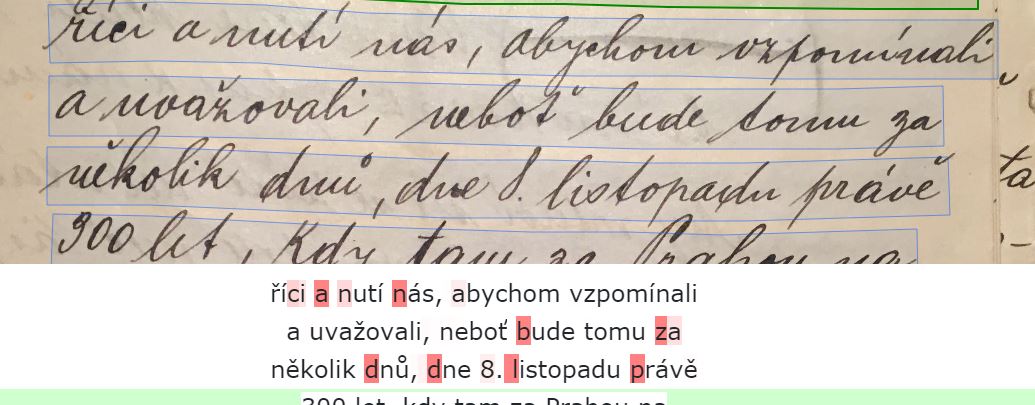 říci a nutí nás, abychom vzpomínali
a uvažovali, neboť bude tomu za
několik dnů, dne 8. listopadu právě
300 let, kdy tam za Prahou na
říci a nutí nás, abychom vzpomínali
a uvažovali, neboť bude tomu za
několik dnů, dne 8. listopadu právě
300 let, kdy tam za Prahou na